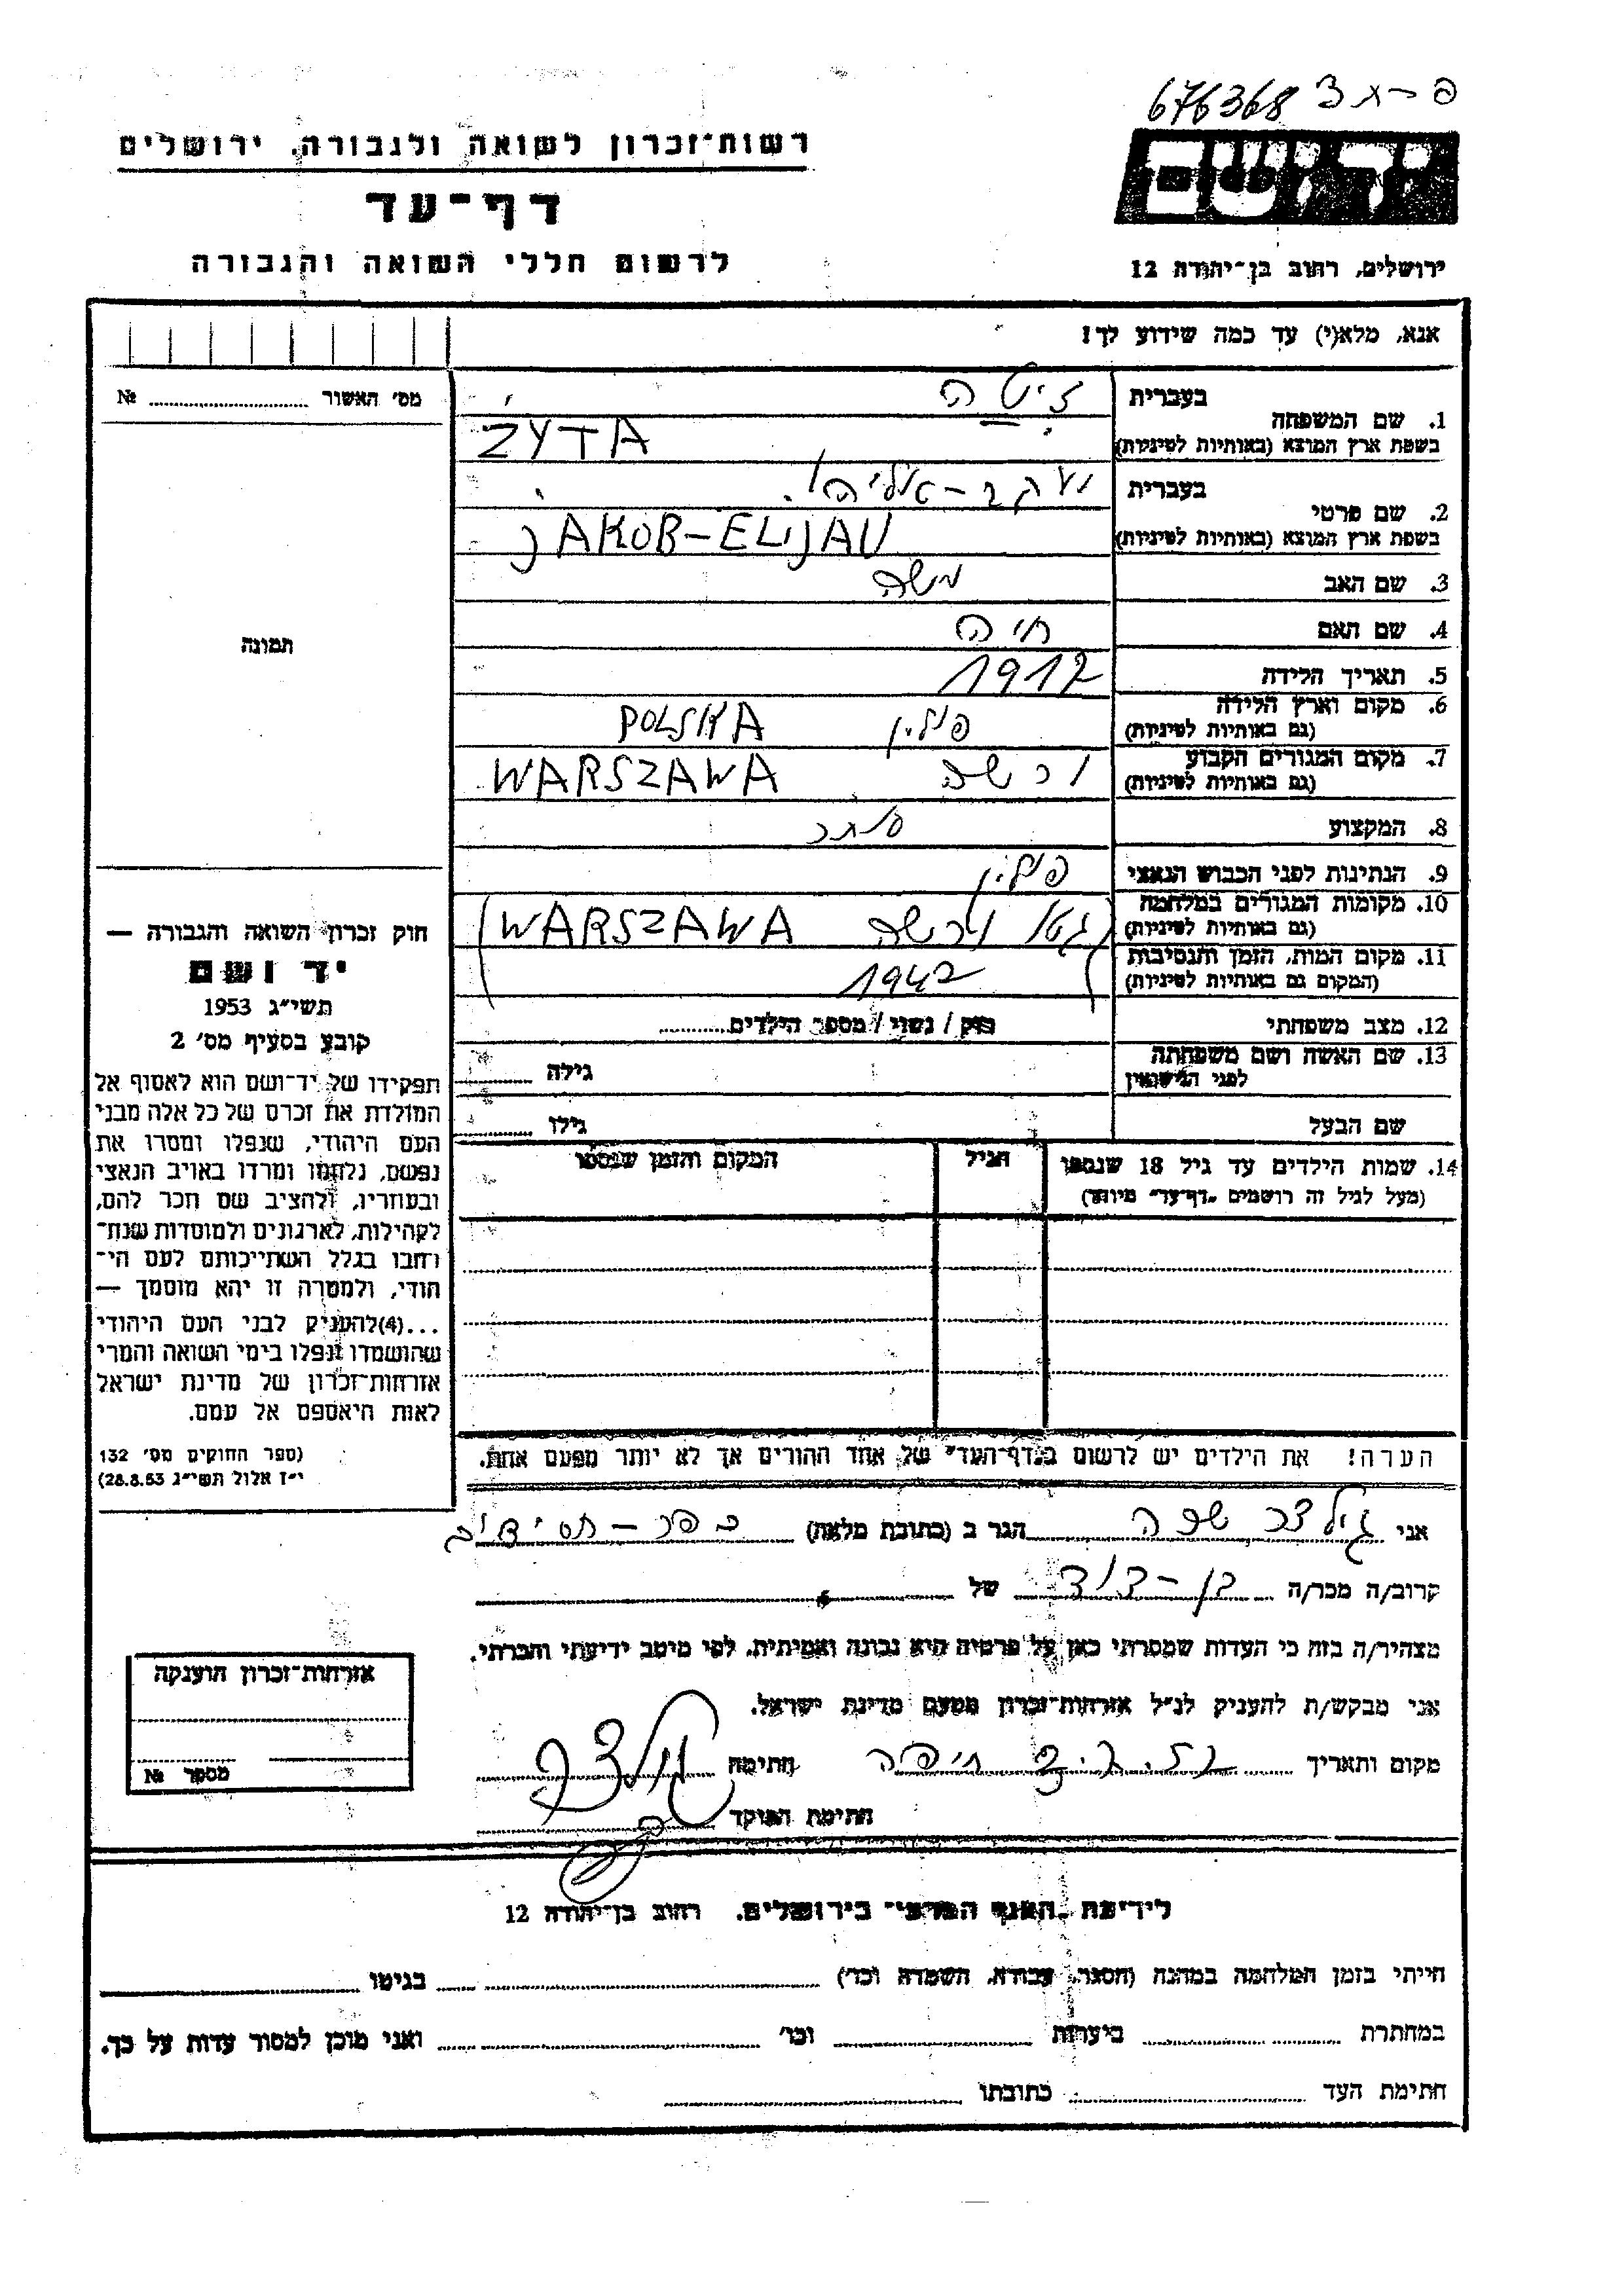 676368 פ-ג3
רשות־זכרון לשואה ולגבורה, ירושלים
יד ושם
דף־עד
לרשום חללי השואה והגבורה
ירושלים, רחוב בן־יהודה 12
אנא, מלא(י) עד כמה שידוע לך!
מס׳ האשור № ........
1. שם המשפחה
בעברית זיטה
בשפת ארץ המוצא (באותיות לטיניות) ZYTA
2. שם פרטי
בעברית יעקב-אליהו
בשפת ארץ המוצא (באותיות לטיניות) JAKOB-ELIJAU
3. שם האב משה
4. שם האם חיה
5. תאריך הלידה 1912
6. מקום וארץ הלידה פולין POLSKA
(גם באותיות לטיניות)
7. מקום המגורים הקבוע ורשה WARSZAWA
(גם באותיות לטיניות)
8. המקצוע סוחר
9. הנתינות לפני הכבוש הנאצי פולין
10. מקומות המגורים במלחמה גטו ורשה WARSZAWA
(גם באותיות לטיניות)
11. מקום המות, הזמן והנסיבות 1942
(המקום גם באותיות לטיניות)
12. מצב משפחתי רוק / נשוי / מספר הילדים........
13. שם האשה ושם משפחתה גילה ........
לפני הנישואין
שם הבעל גילו ........
14. שמות הילדים עד גיל 18 שנספו הגיל המקום והזמן שנספו
(מעל לגיל זה רושמים „דף־עד” מיוחד)
הערה! את הילדים יש לרשום ב„דף־העד” של אחד ההורים אך לא יותר מפעם אחת.
תמונה
חוק זכרון השואה והגבורה —
יד ושם
תשי״ג 1953
קובע בסעיף מס׳ 2
תפקידו של יד־ושם הוא לאסוף אל
המולדת את זכרם של כל אלה מבני
העם היהודי, שנפלו ומסרו את
נפשם, נלחמו ומרדו באויב הנאצי
ובעוזריו, ולהציב שם וזכר להם,
לקהילות, לארגונים ולמוסדות שנח־
רבו בגלל השתייכותם לעם הי־
הודי, ולמטרה זו יהא מוסמך —
...(4)להעניק לבני העם היהודי
שהושמדו ונפלו בימי השואה והמרי
אזרחות־זכרון של מדינת ישראל
לאות היאספם אל עמם.
(ספר החוקים מס׳ 132
י״ז אלול תשי״ג 28.8.53)
אני גילדר שפה הגר ב (כתובת מלאה) כפר-חסידים
קרוב/ה מכר/ה בן-דוד של
מצהיר/ה בזה כי העדות שמסרתי כאן על פרטיה היא נכונה ואמיתית, לפי מיטב ידיעתי והכרתי.
אני מבקש/ת להעניק לנ״ל אזרחות־זכרון מטעם מדינת ישראל.
מקום ותאריך חיפה חתימה
חתימת הפוקד
אזרחות־זכרון הוענקה
מספר №
לידיעת „האגף המדעי” בירושלים, רחוב בן־יהודה 12
הייתי בזמן המלחמה במחנה (הסגר, עבודה, השמדה וכו׳) ........ בגיטו ........
במחתרת ........ ביערות ........ וכו׳ ........ ואני מוכן למסור עדות על כך.
חתימת העד ........ כתובתו ........